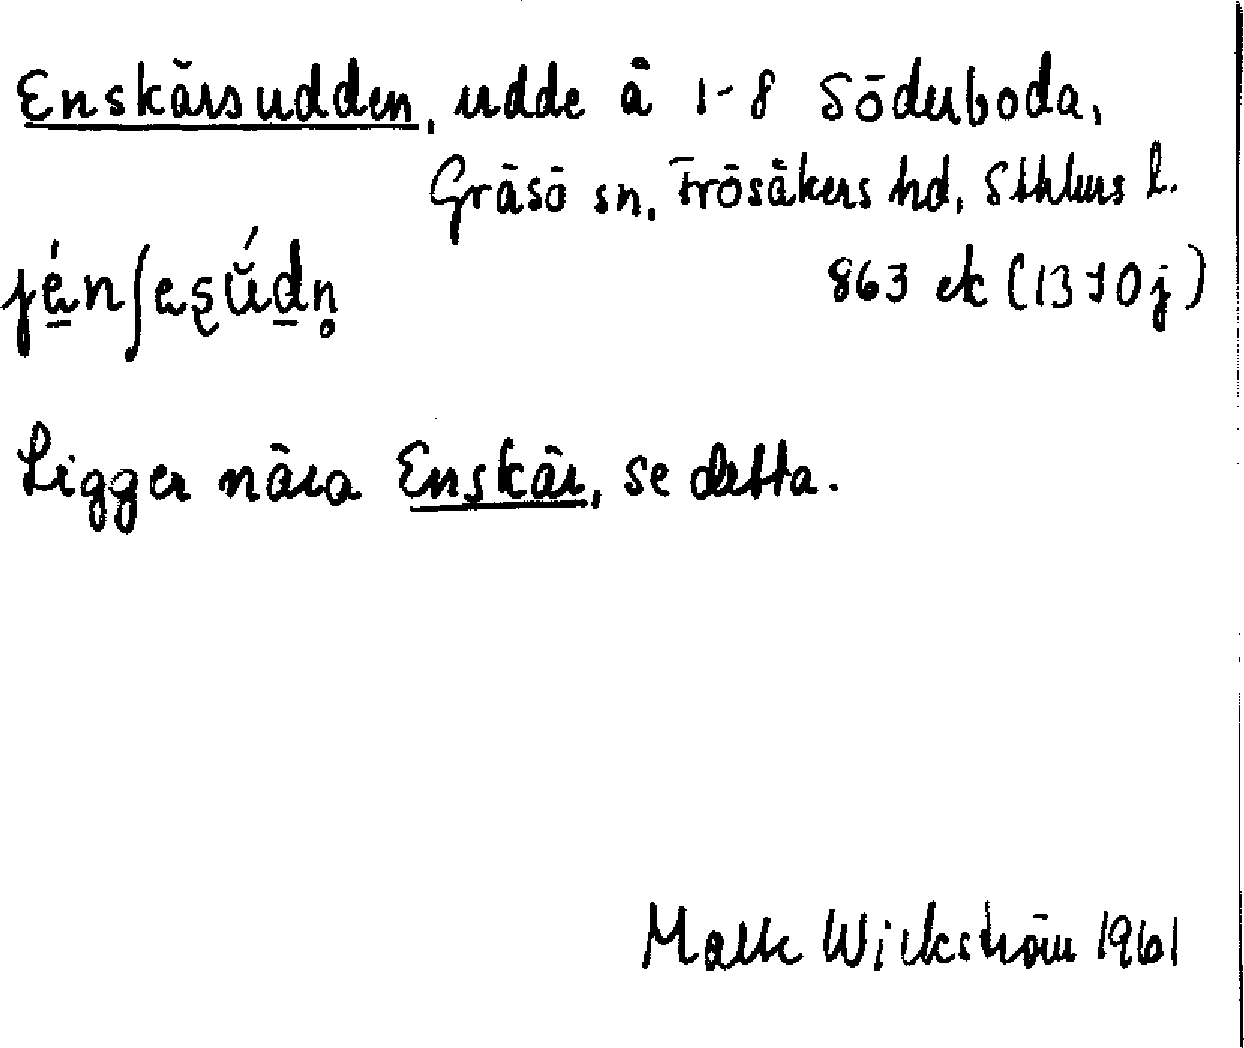 Enskärsudden, udde å 1-8 Söderboda,
Gräsö sn, Frösåkers hd, Sthlms l.
863 ek (13I0j)
Ligger nära Enskär, se detta.
Wickström 1961